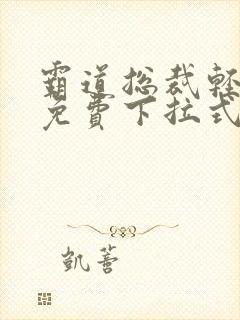 霸道总裁轻
免费下拉式
凯蔷